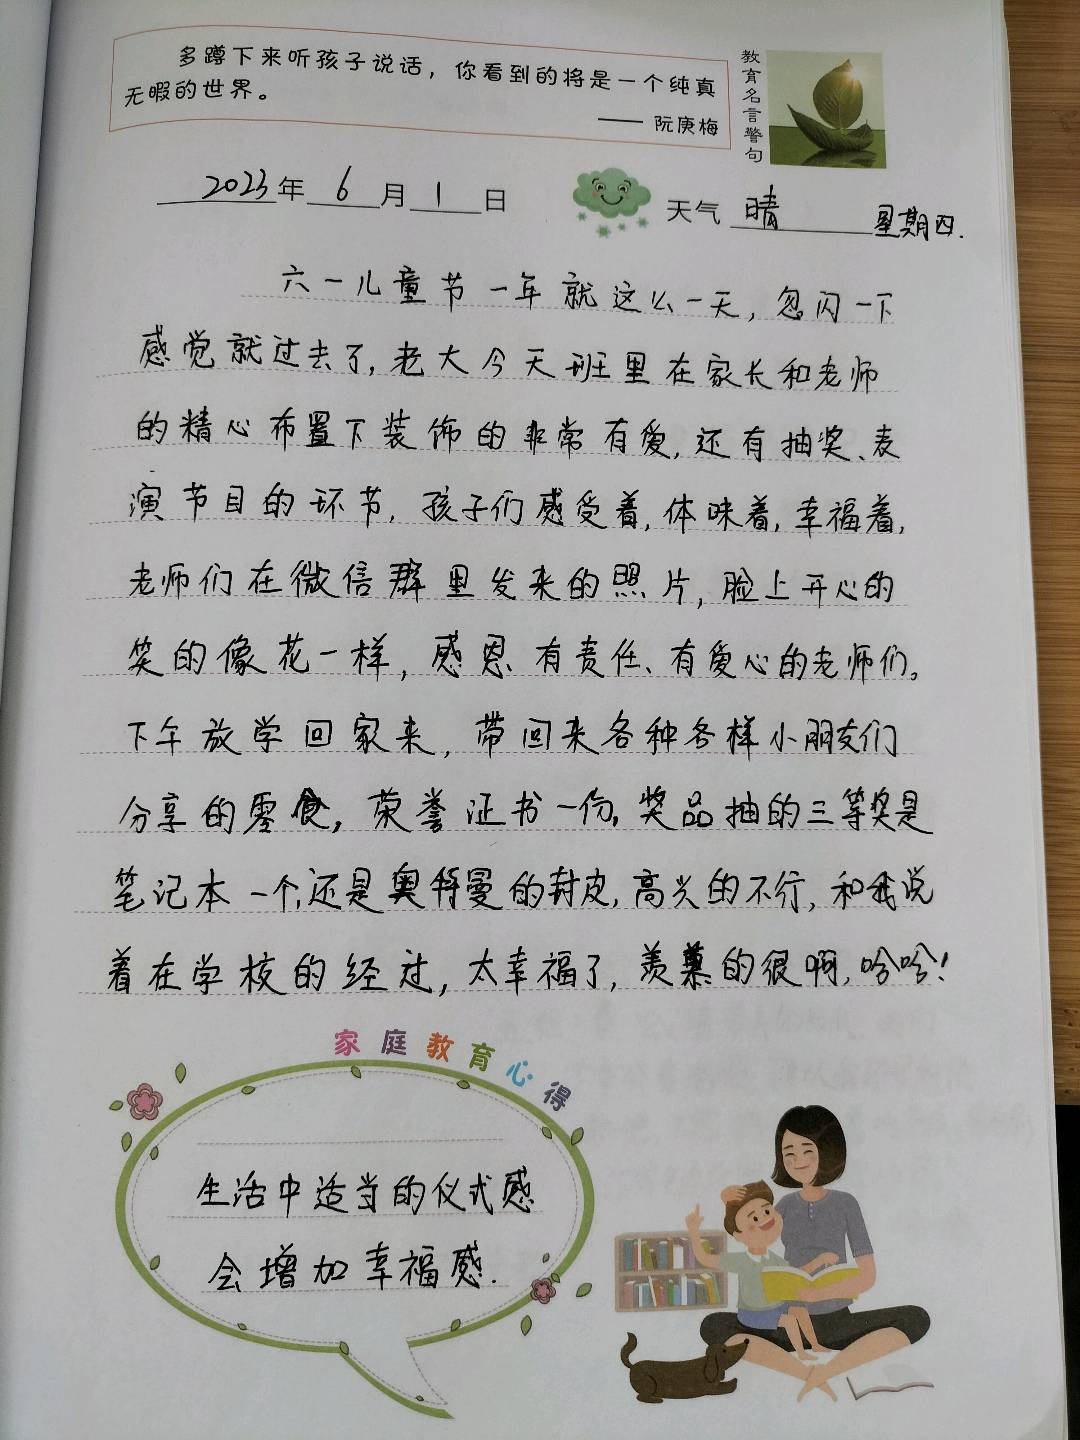 多蹲下来听孩子说话，你看到的将是一个纯真
无暇的世界。
—— 阮庚梅
教育名言警句
2023年 6 月 1 日
天气 晴 星期四.
六一儿童节一年就这么一天，忽闪一下
感觉就过去了,老大今天班里在家长和老师
的精心布置下装饰的非常有爱,还有抽奖、表
演节目的环节,孩子们感受着,体味着,幸福着,
老师们在微信群里发来的照片,脸上开心的
笑的像花一样,感恩、有责任、有爱心的老师们。
下午放学回家来,带回来各种各样小朋友们
分享的零食,荣誉证书一份,奖品抽的三等奖是
笔记本一个,还是奥特曼的封皮,高兴的不行,和我说
着在学校的经过,太幸福了,羡慕的很啊,哈哈!
家庭教育心得
生活中适当的仪式感
会增加幸福感.